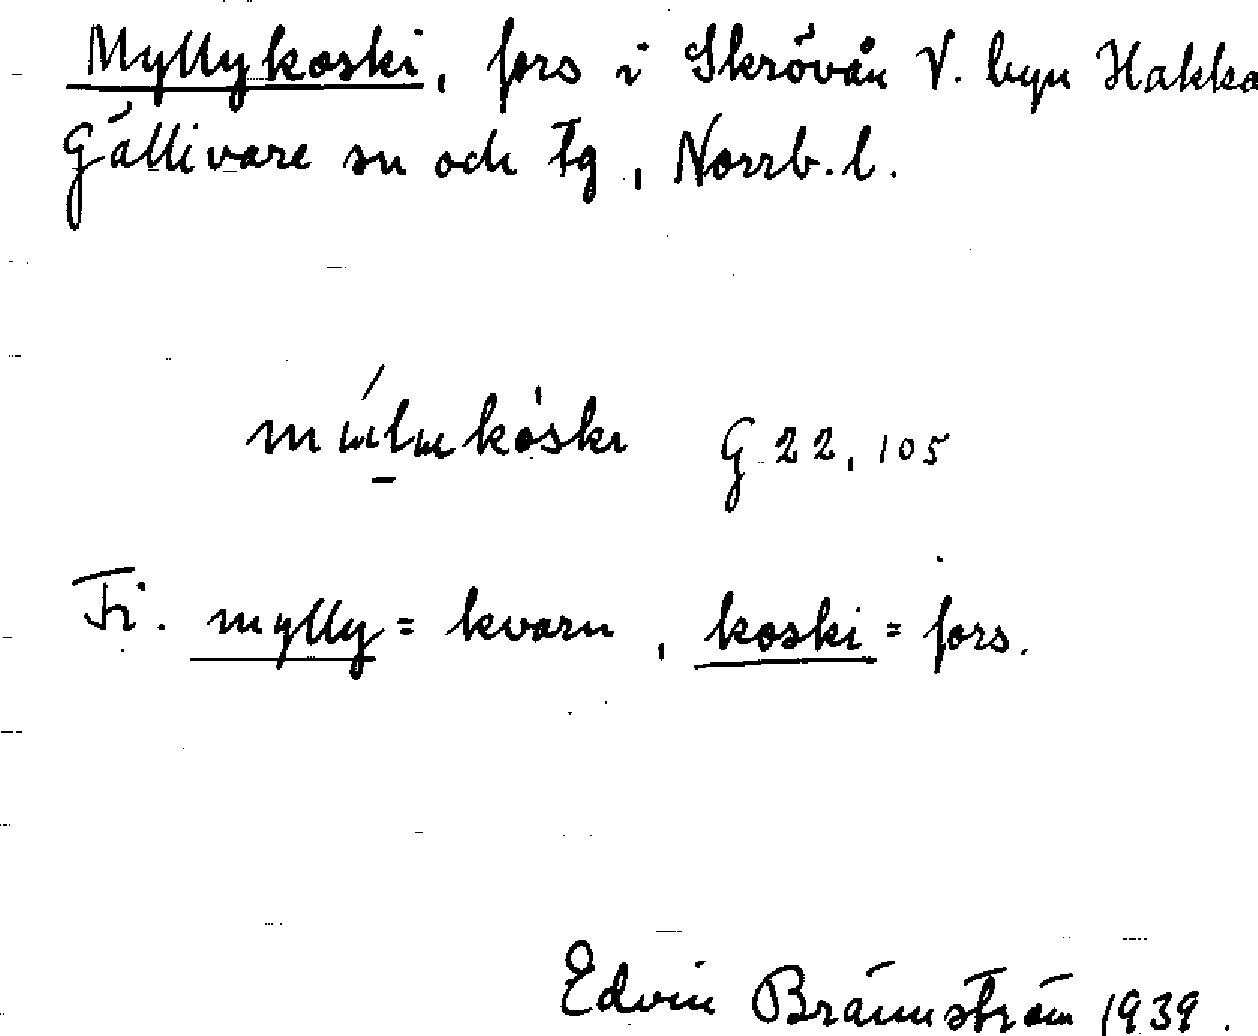 Myllykoski, fors i Skrövån V. byn Hakka
Gällivare sn och tg, Norrb. l.
G 22, 105
Fi. mylly = kvarn, koski = fors.
Edvin Brännström 1939.